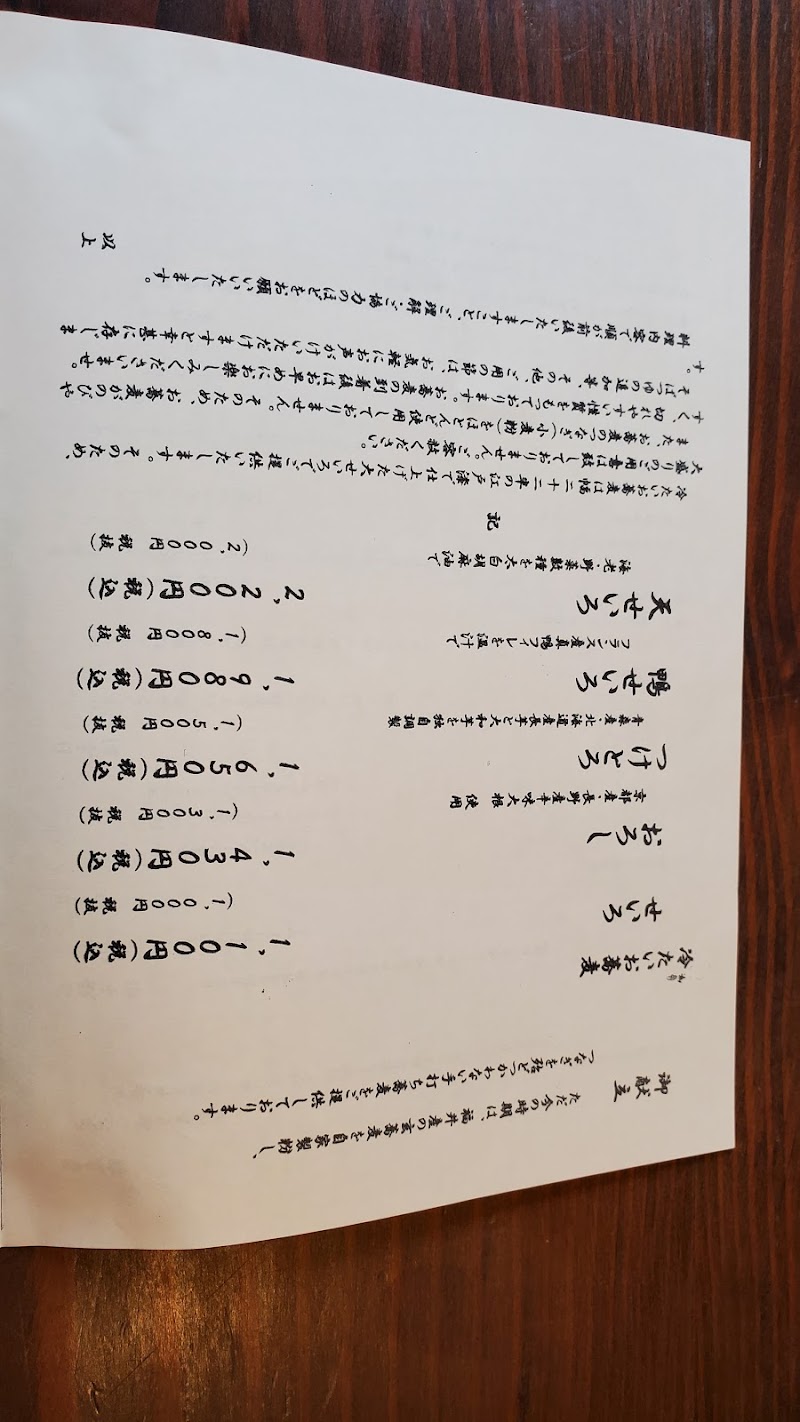 御献立
ただ今の時期は、福井産の玄蕎麦を自家製粉し、
つなぎを殆どつかわない手打ち蕎麦をご提供しております。
冷たいお蕎麦
せいろ 1,100円(税込)
(1,000円 税抜)
おろし 1,430円(税込)
京都産・長野産辛味大根使用 (1,300円 税抜)
つけとろ 1,650円(税込)
青森産・北海道産長芋と大和芋を独自調製 (1,500円 税抜)
鴨せいろ 1,980円(税込)
フランス産真鴨フィレを温汁で (1,800円 税抜)
天せいろ 2,200円(税込)
海老・野菜数種を太白胡麻油で (2,000円 税抜)
記
冷たいお蕎麦は幅二十二の江戸漆で仕上げた大せいろでご提供いたします。そのため、
大盛りのご用意は致しておりません。ご容赦ください。
また、お蕎麦のつなぎ(小麦粉)をほとんど使用しておりません。そのため、お蕎麦がのびや
すく、切れやすい性質をもっております。お蕎麦の到着後はお早めにお楽しみくださいませ。
そばつゆの追加等、その他、ご用の節は、お気軽にお声がけいただけますと幸甚に存じま
す。
料理内容で順が前後いたしますこと、ご理解・ご協力のほどをお願いいたします。
以上